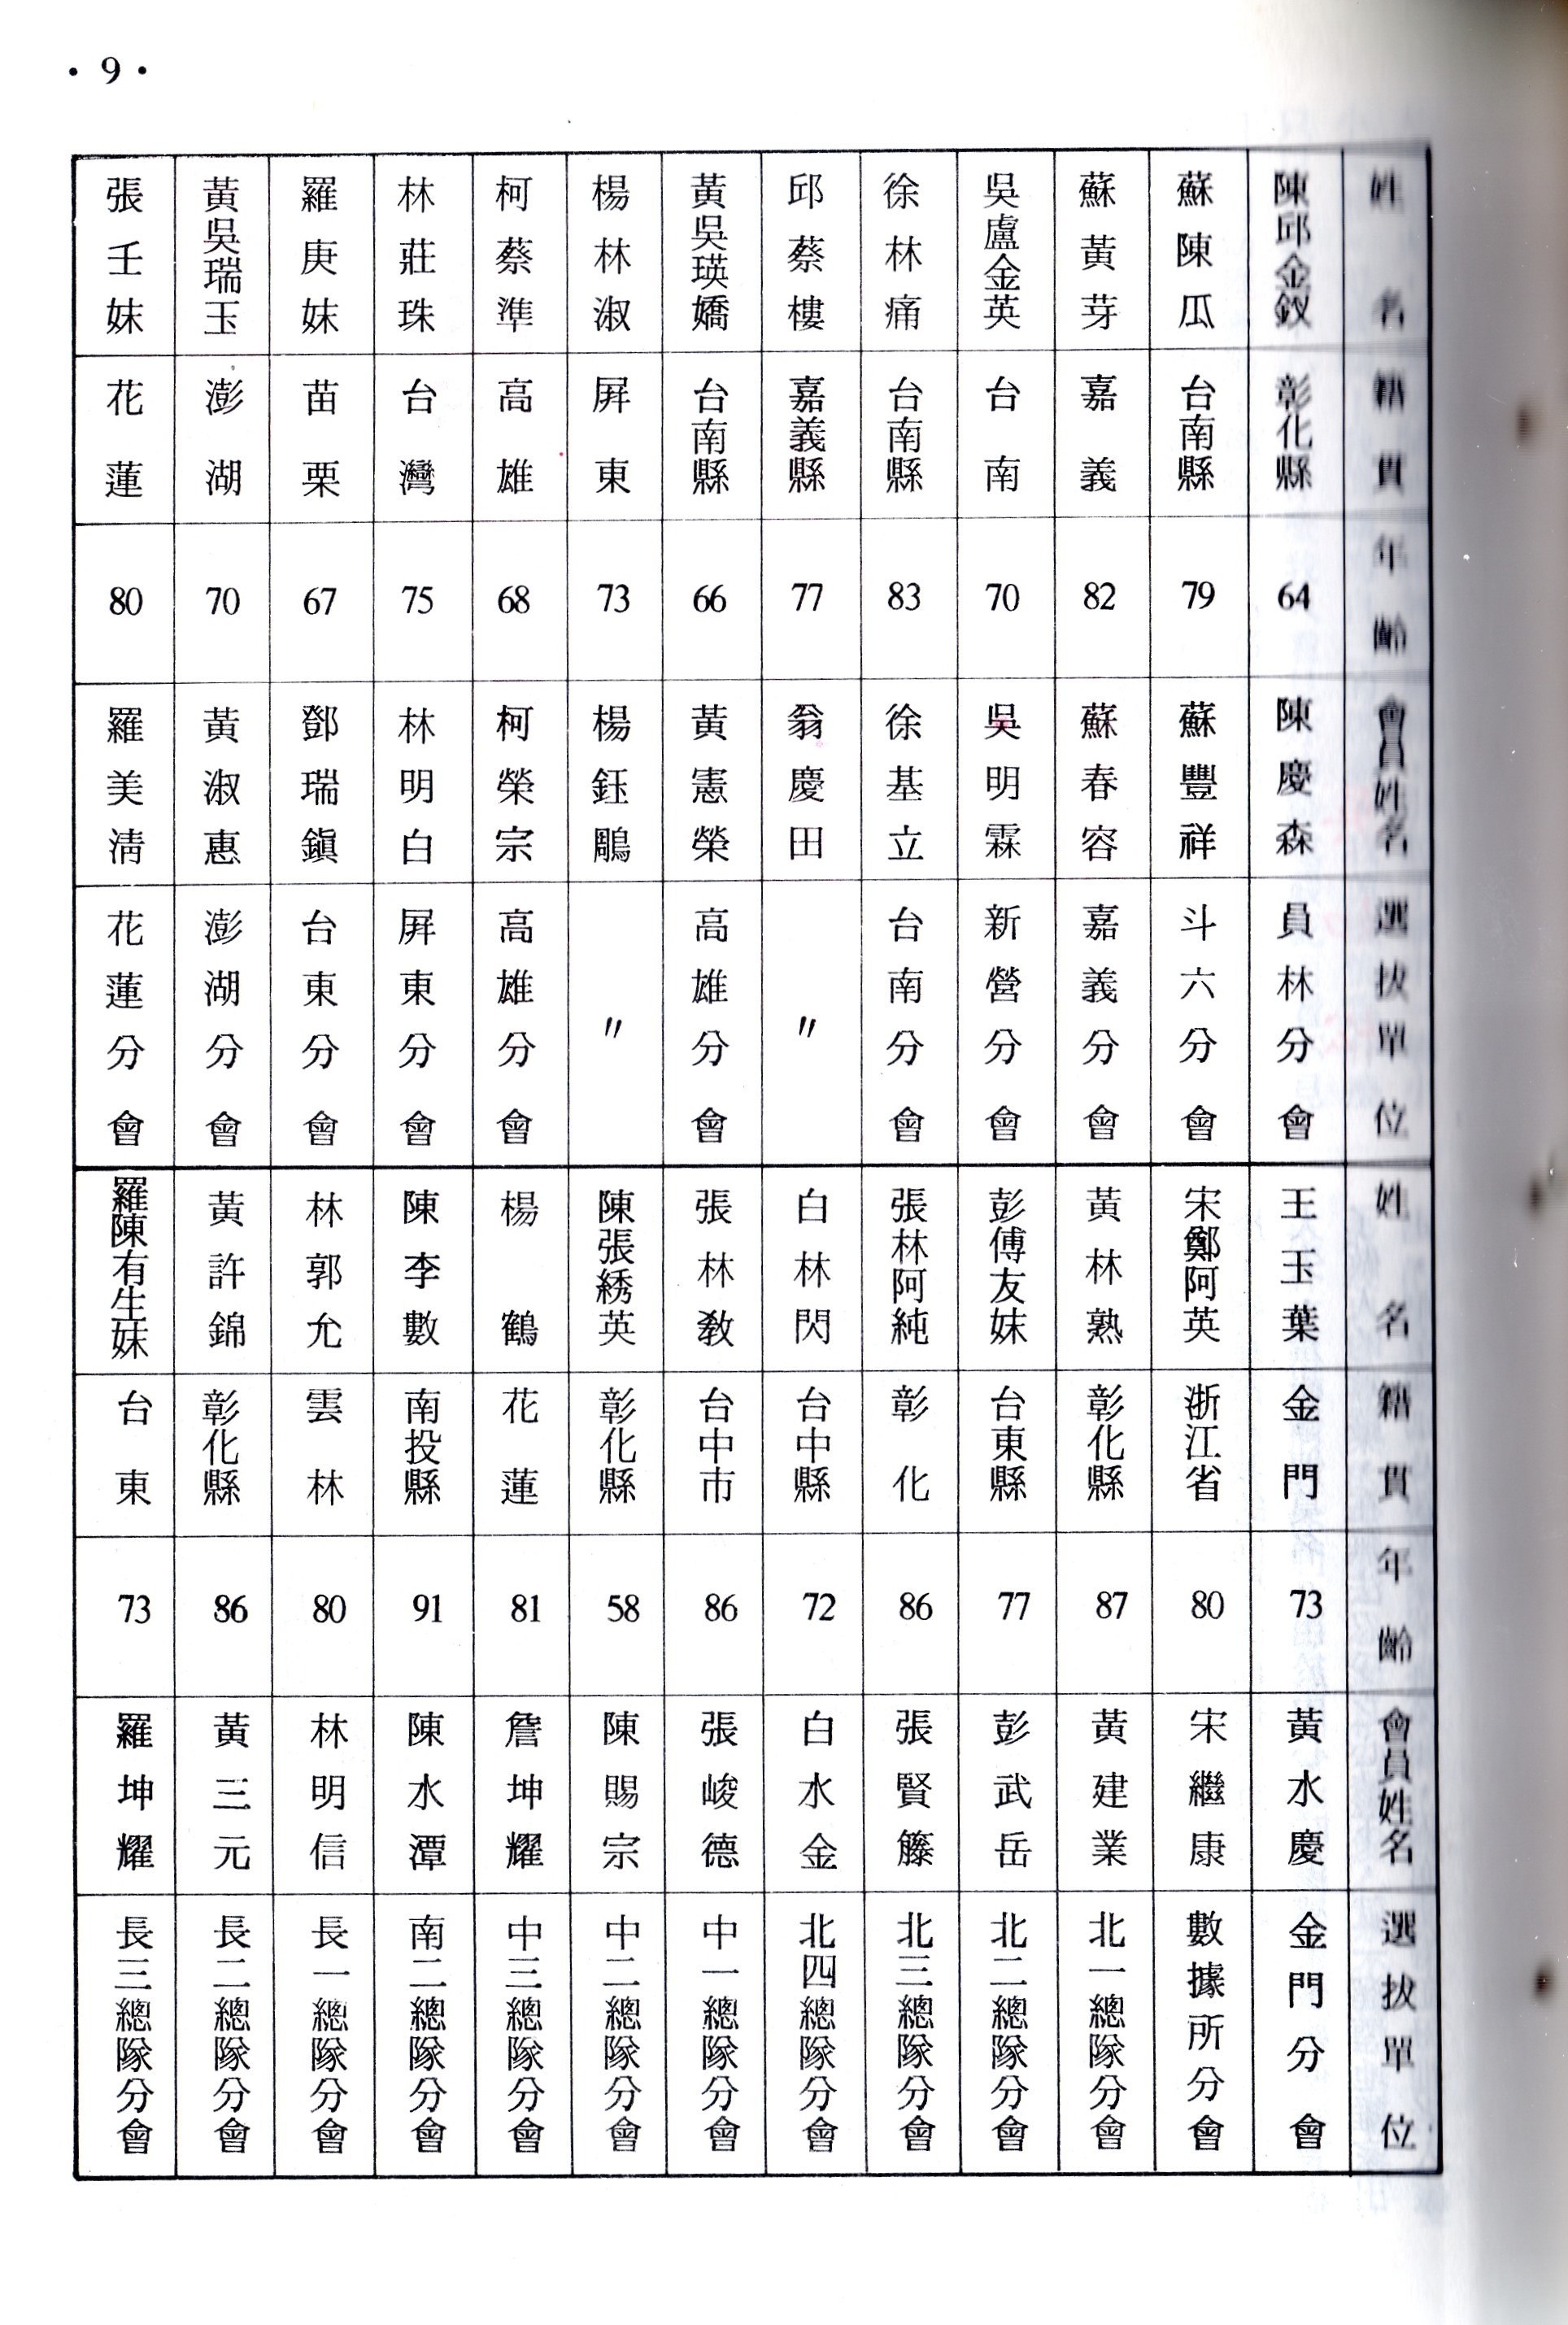 ·9·
姓名 籍貫 年齡 會員姓名 選拔單位 姓名 籍貫 年齡 會員姓名 選拔單位
陳邱金釵 彰化縣 64 陳慶森 員林分會 王玉葉 金門 73 黃水慶 金門分會
蘇陳瓜 台南縣 79 蘇豐祥 斗六分會 宋鄭阿英 浙江省 80 宋繼康 數據所分會
蘇黃芽 嘉義 82 蘇春容 嘉義分會 黃林熟 彰化縣 87 黃建業 北一總隊分會
吳盧金英 台南 70 吳明霖 新營分會 彭傅友妹 台東縣 77 彭武岳 北二總隊分會
徐林痛 台南縣 83 徐基立 台南分會 張林阿純 彰化 86 張賢籐 北三總隊分會
邱蔡樓 嘉義縣 77 翁慶田 〃 白林閃 台中縣 72 白水金 北四總隊分會
黃吳瑛嬌 台南縣 66 黃憲榮 高雄分會 張林教 台中市 86 張峻德 中一總隊分會
楊林淑 屏東 73 楊鈺鵰 〃 陳張綉英 彰化縣 58 陳賜宗 中二總隊分會
柯蔡準 高雄 68 柯榮宗 高雄分會 楊鶴 花蓮 81 詹坤耀 中三總隊分會
林莊珠 台灣 75 林明白 屏東分會 陳李數 南投縣 91 陳水潭 南二總隊分會
羅庚妹 苗栗 67 鄧瑞鎭 台東分會 林郭允 雲林 80 林明信 長一總隊分會
黃吳瑞玉 澎湖 70 黃淑惠 澎湖分會 黃許錦 彰化縣 86 黃三元 長二總隊分會
張壬妹 花蓮 80 羅美淸 花蓮分會 羅陳有生妹 台東 73 羅坤耀 長三總隊分會